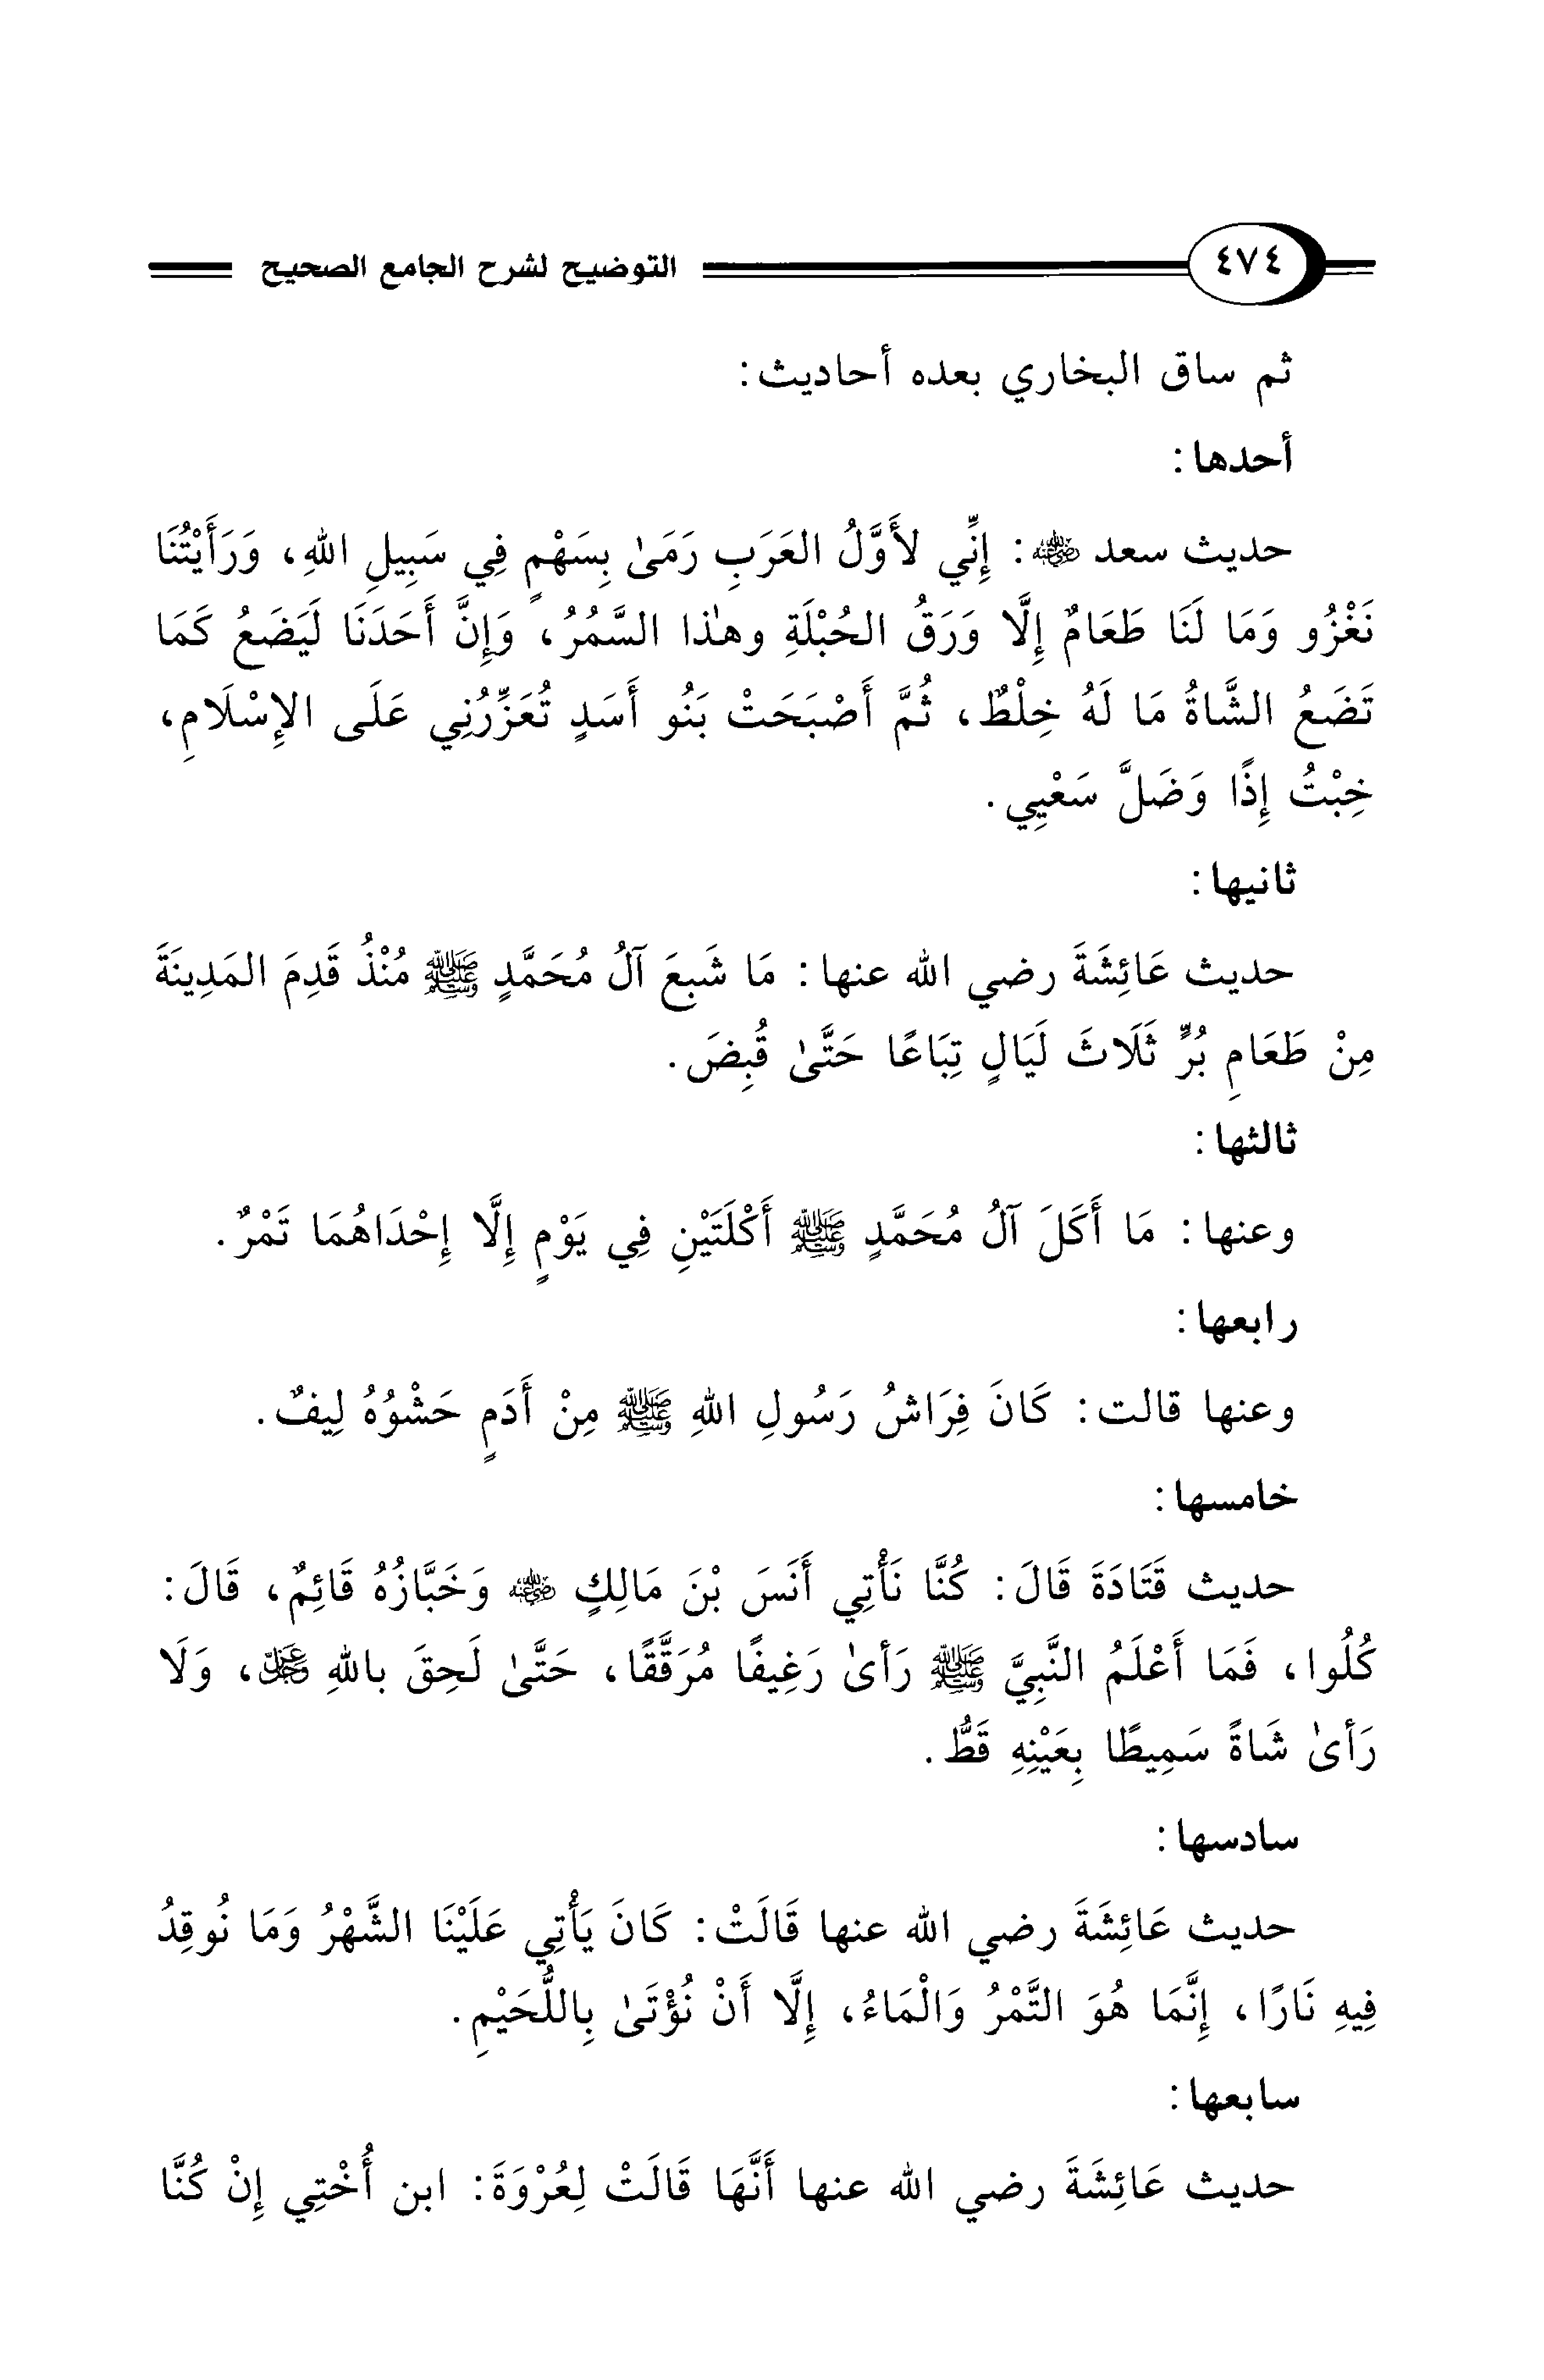 ٤٧٤ التوضيح لشرح الجامع الصحيح
ثم ساق البخاري بعده أحاديث:
أحدها:
حديث سعد ﵁: إِنِّي لأَوَّلُ العَرَبِ رَمَىٰ بِسَهْمٍ فِي سَبِيلِ اللهِ، وَرَأَيْتُنَا
نَغْزُو وَمَا لَنَا طَعَامٌ إِلَّا وَرَقُ الحُبْلَةِ وهٰذا السَّمُرُ، وَإِنَّ أَحَدَنَا لَيَضَعُ كَمَا
تَضَعُ الشَّاةُ مَا لَهُ خِلْطٌ، ثُمَّ أَصْبَحَتْ بَنُو أَسَدٍ تُعَزِّرُنِي عَلَى الإِسْلَامِ،
خِبْتُ إِذًا وَضَلَّ سَعْيِي.
ثانيها:
حديث عَائِشَةَ رضي الله عنها: مَا شَبِعَ آلُ مُحَمَّدٍ ﷺ مُنْذُ قَدِمَ المَدِينَةَ
مِنْ طَعَامِ بُرٍّ ثَلَاثَ لَيَالٍ تِبَاعًا حَتَّىٰ قُبِضَ.
ثالثها:
وعنها: مَا أَكَلَ آلُ مُحَمَّدٍ ﷺ أَكْلَتَيْنِ فِي يَوْمٍ إِلَّا إِحْدَاهُمَا تَمْرٌ.
رابعها:
وعنها قالت: كَانَ فِرَاشُ رَسُولِ اللهِ ﷺ مِنْ أَدَمٍ حَشْوُهُ لِيفٌ.
خامسها:
حديث قَتَادَةَ قَالَ: كُنَّا نَأْتِي أَنَسَ بْنَ مَالِكٍ ﵁ وَخَبَّازُهُ قَائِمٌ، قَالَ:
كُلُوا، فَمَا أَعْلَمُ النَّبِيَّ ﷺ رَأىٰ رَغِيفًا مُرَقَّقًا، حَتَّىٰ لَحِقَ باللهِ ﷿، وَلَا
رَأىٰ شَاةً سَمِيطًا بِعَيْنِهِ قَطُّ.
سادسها:
حديث عَائِشَةَ رضي الله عنها قَالَتْ: كَانَ يَأْتِي عَلَيْنَا الشَّهْرُ وَمَا نُوقِدُ
فِيهِ نَارًا، إِنَّمَا هُوَ التَّمْرُ وَالْمَاءُ، إِلَّا أَنْ نُؤْتَىٰ بِاللُّحَيْمِ.
سابعها:
حديث عَائِشَةَ رضي الله عنها أَنَّهَا قَالَتْ لِعُرْوَةَ: ابن أُخْتِي إِنْ كُنَّا